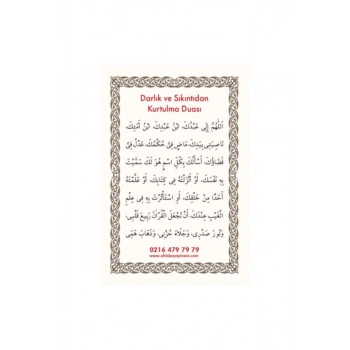 Darlık ve Sıkıntıdan
Kurtulma Duası
اَللّٰهُمَّ إِنِّي عَبْدُكَ، ابْنُ عَبْدِكَ، ابْنُ أَمَتِكَ،
نَاصِيَتِي بِيَدِكَ، مَاضٍ فِيَّ حُكْمُكَ، عَدْلٌ فِيَّ
قَضَاؤُكَ، أَسْأَلُكَ بِكُلِّ اسْمٍ هُوَ لَكَ سَمَّيْتَ
بِهِ نَفْسَكَ، أَوْ أَنْزَلْتَهُ فِي كِتَابِكَ، أَوْ عَلَّمْتَهُ
أَحَدًا مِنْ خَلْقِكَ، أَوِ اسْتَأْثَرْتَ بِهِ فِي عِلْمِ
الْغَيْبِ عِنْدَكَ، أَنْ تَجْعَلَ الْقُرْآنَ رَبِيعَ قَلْبِي،
وَنُورَ صَدْرِي، وَجَلَاءَ حُزْنِي، وَذَهَابَ هَمِّي
0216 479 79 79